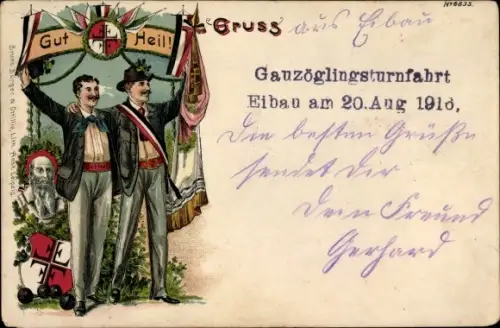 No 6835.
Gut Heil!
Gruss aus Eibau
Gauzöglingsturnfahrt
Eibau am 20.Aug 1910,
Die besten Grüße
sendet Dir
Dein Freund
Gerhard